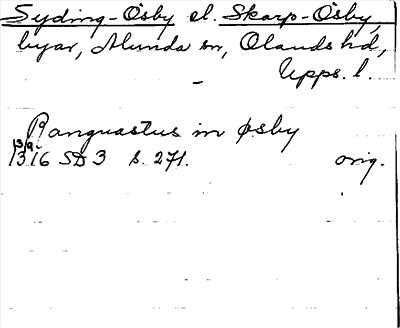 Syding-Ösby el. Skarp-Ösby,
byar, Alunda sn, Olands hd,
Upps. l.
Ranguastus in øsby
13/9
1316 SD 3 s. 271. orig.